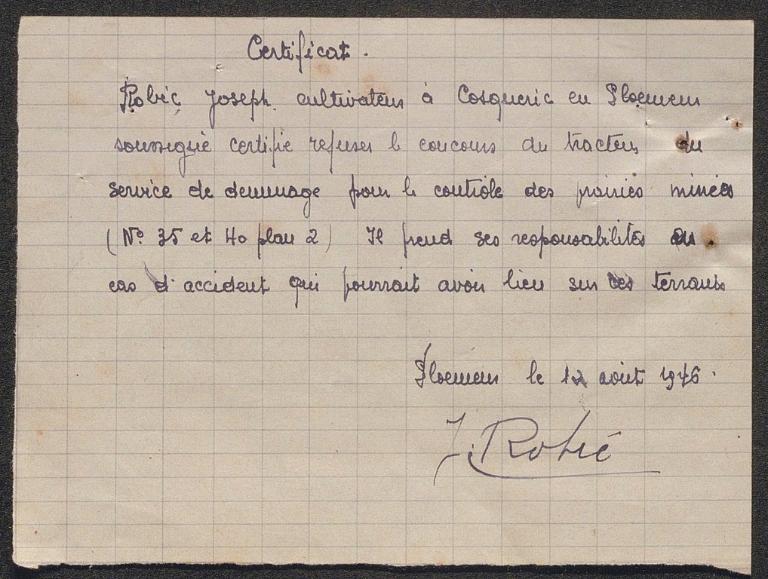 Certificat.
Robic Joseph cultivateur à Cosqueric en Ploemeur
soussigné certifie refuser le concours du tracteur du
service de deminage pour le contrôle des prairies minées
(No 35 et 40 plan 2) Il prend ses responsabilités au
cas d'accident qui pourrait avoir lieu sur ces terrains
Ploemeur le 12 août 1946.
J. Robic